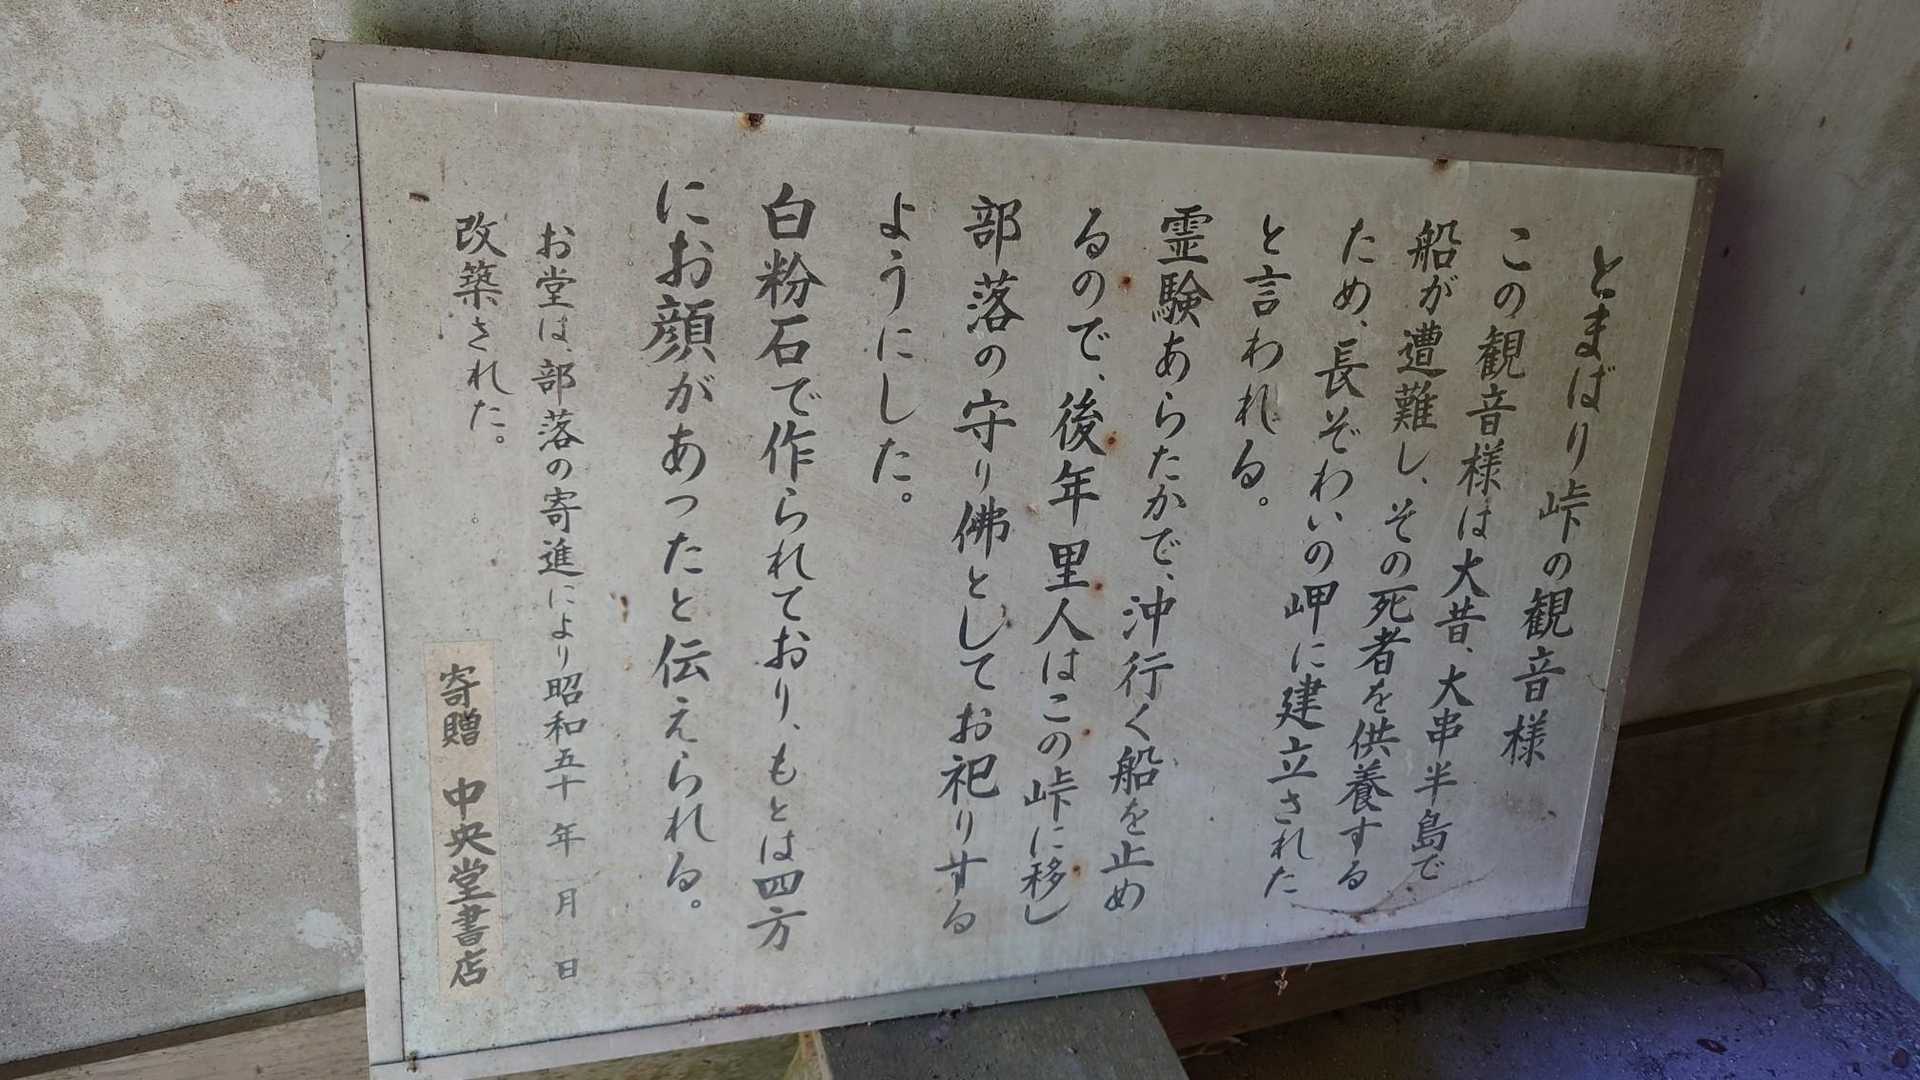 とまばり峠の観音様
この観音様は大昔、大串半島で
船が遭難し、その死者を供養する
ため、長ぞわいの岬に建立された
と言われる。
霊験あらたかで、沖行く船を止め
るので、後年里人はこの峠に移し
部落の守り佛としてお祀りする
ようにした。
白粉石で作られており、もとは四方
にお顔があったと伝えられる。
お堂は、部落の寄進により昭和五十年 月 日
改築された。
寄贈 中央堂書店